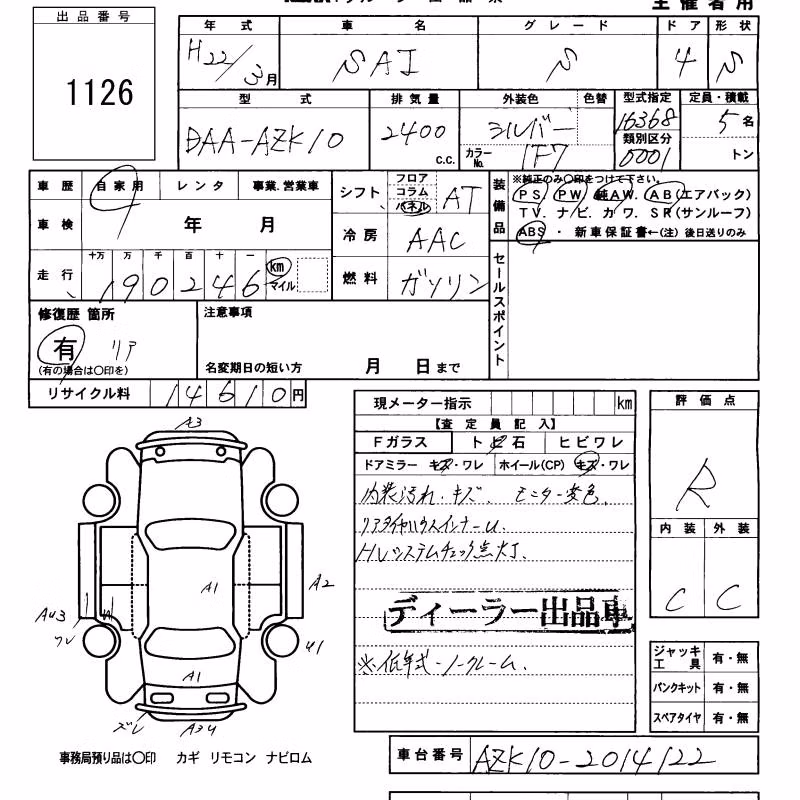 主催者用
出品番号
1126
年式 車名 グレード ドア 形状
H22/3月 SAI S 4 S
型式 排気量 外装色 色替 型式指定 定員・積載
DAA-AZK10 2400 c.c. シルバー 16368 5名
カラーNo. 1F7 類別区分 0001 トン
車歴 自家用 レンタ 事業.営業車
シフト フロア コラム パネル AT
装備品
※純正のみ○印をつけて下さい。
PS. PW. 純AW. AB(エアバック)
TV. ナビ. カワ. SR(サンルーフ)
ABS ・ 新車保証書←(注)後日送りのみ
車検 年 月
冷房 AAC
走行 十万 万 千 百 十 一
190246 km マイル
燃料 ガソリン
セールスポイント
修復歴 箇所
有 リア
(有の場合は○印を)
注意事項
名変期日の短い方 月 日まで
リサイクル料 14610円
現メーター指示 km
【査定員記入】
Fガラス トビ石 ヒビワレ
ドアミラー キズ・ワレ ホイール(CP) キズ・ワレ
内装汚れ・キズ、モニター変色、
リアタイヤハウスインナーU、
HVシステムチェック点灯、
ディーラー出品車
※低年式・ノークレーム、
評価点
R
内装 外装
C C
A3
A1
A2
ワレ
A1
ズレ
ジャッキ工具 有・無
パンクキット 有・無
スペアタイヤ 有・無
事務局預り品は○印 カギ リモコン ナビロム
車台番号 AZK10-2014122